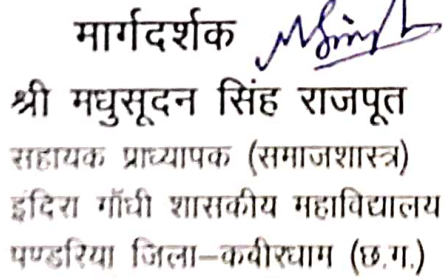 मार्गदर्शक
श्री मधुसूदन सिंह राजपूत
सहायक प्राध्यापक (समाजशास्त्र)
इंदिरा गाँधी शासकीय महाविद्यालय
पण्डरिया जिला–कबीरधाम (छ.ग.)